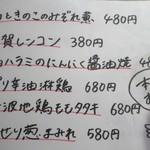 ときのこのみぞれ煮、480円
賀レンコン 380円
ハラミのにんにく醤油焼
辛油淋鶏 680円
波地鶏ももタタキ 680円
せり葱まみれ 580円